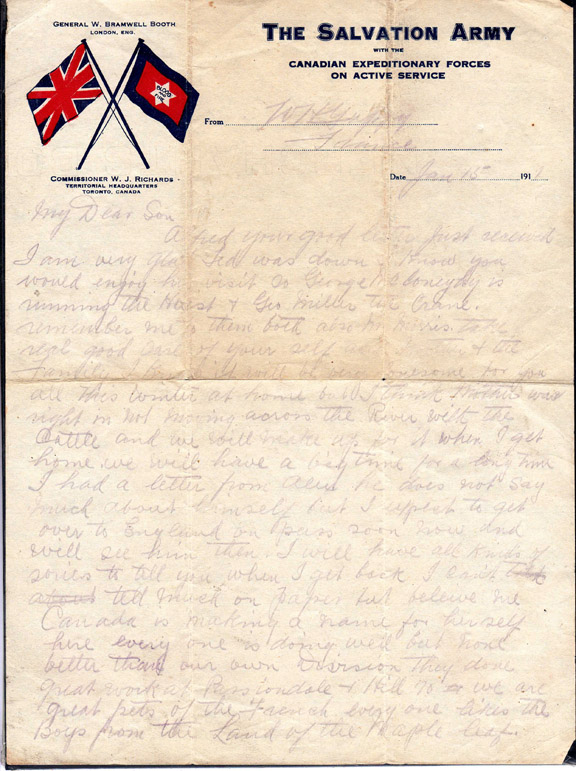 GENERAL W. BRAMWELL BOOTH
LONDON, ENG.
THE SALVATION ARMY
WITH THE
CANADIAN EXPEDITIONARY FORCES
ON ACTIVE SERVICE
BLOOD AND FIRE
From
France
COMMISSIONER W. J. RICHARDS
TERRITORIAL HEADQUARTERS
TORONTO, CANADA
Date Jan 15 191
My Dear Son
Alfred your good letter just received
I am very glad Ted was down I know you
would enjoy his visit So George is
running the Hoist & Geo Miller the Crane.
remember me to them both also
real good care of your self and & the
family I know it will be very lonesome for you
all this winter at home but I think Mother was
right on not moving across the River with the
Cattle and we will make up for it when I get
home we will have a big time for a long time
I had a letter from he does not say
much about himself but I expect to get
over to England on pass soon now and
will see him then. I will have all kinds of
sories to tell you when I get back I can't talk
about tell much on paper but beleive me
Canada is making a name for herself
here every one is doing well but none
better than our own Division They done
great work at Passiondale & Hill 70 & we are
great pets of the French every one likes the
Boys from the Land of the Maple leaf.